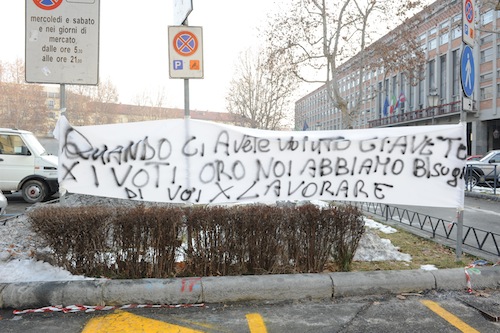 mercoledi e sabato
e nei giorni di
mercato
dalle ore 5
alle ore 21
P
QUANDO CI AVETE VOLUTO C'ERAVATE
X I VOTI ORO NOI ABBIAMO BISUGN
DI VOI X LAVORARE